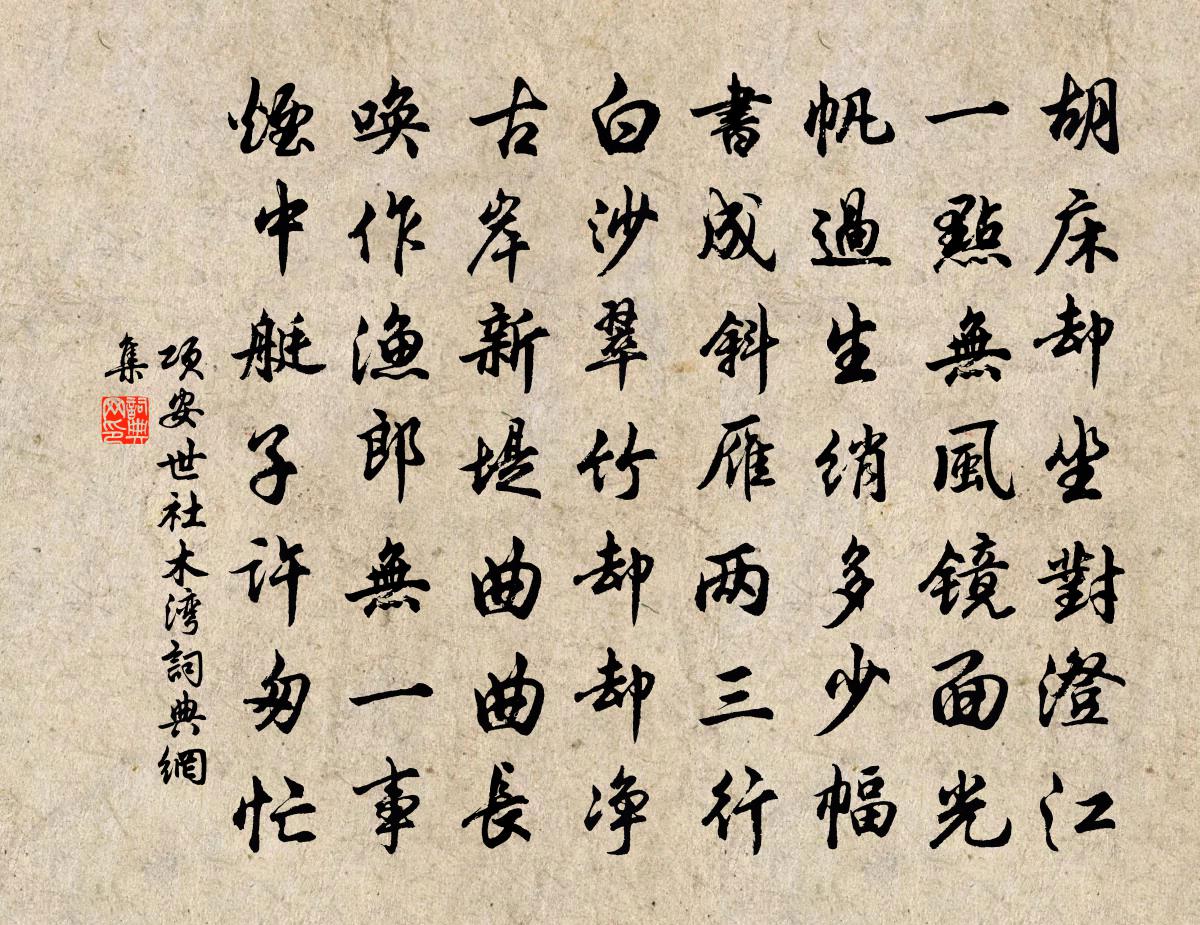 胡床却坐對澄江
一點無風鏡面光
帆過生綃多少幅
書成斜雁两三行
白沙翠竹却却净
古岸新堤曲曲長
喚作漁郎無一事
煙中艇子許匆忙
項安世社木湾詞典網
集
詞典
网印